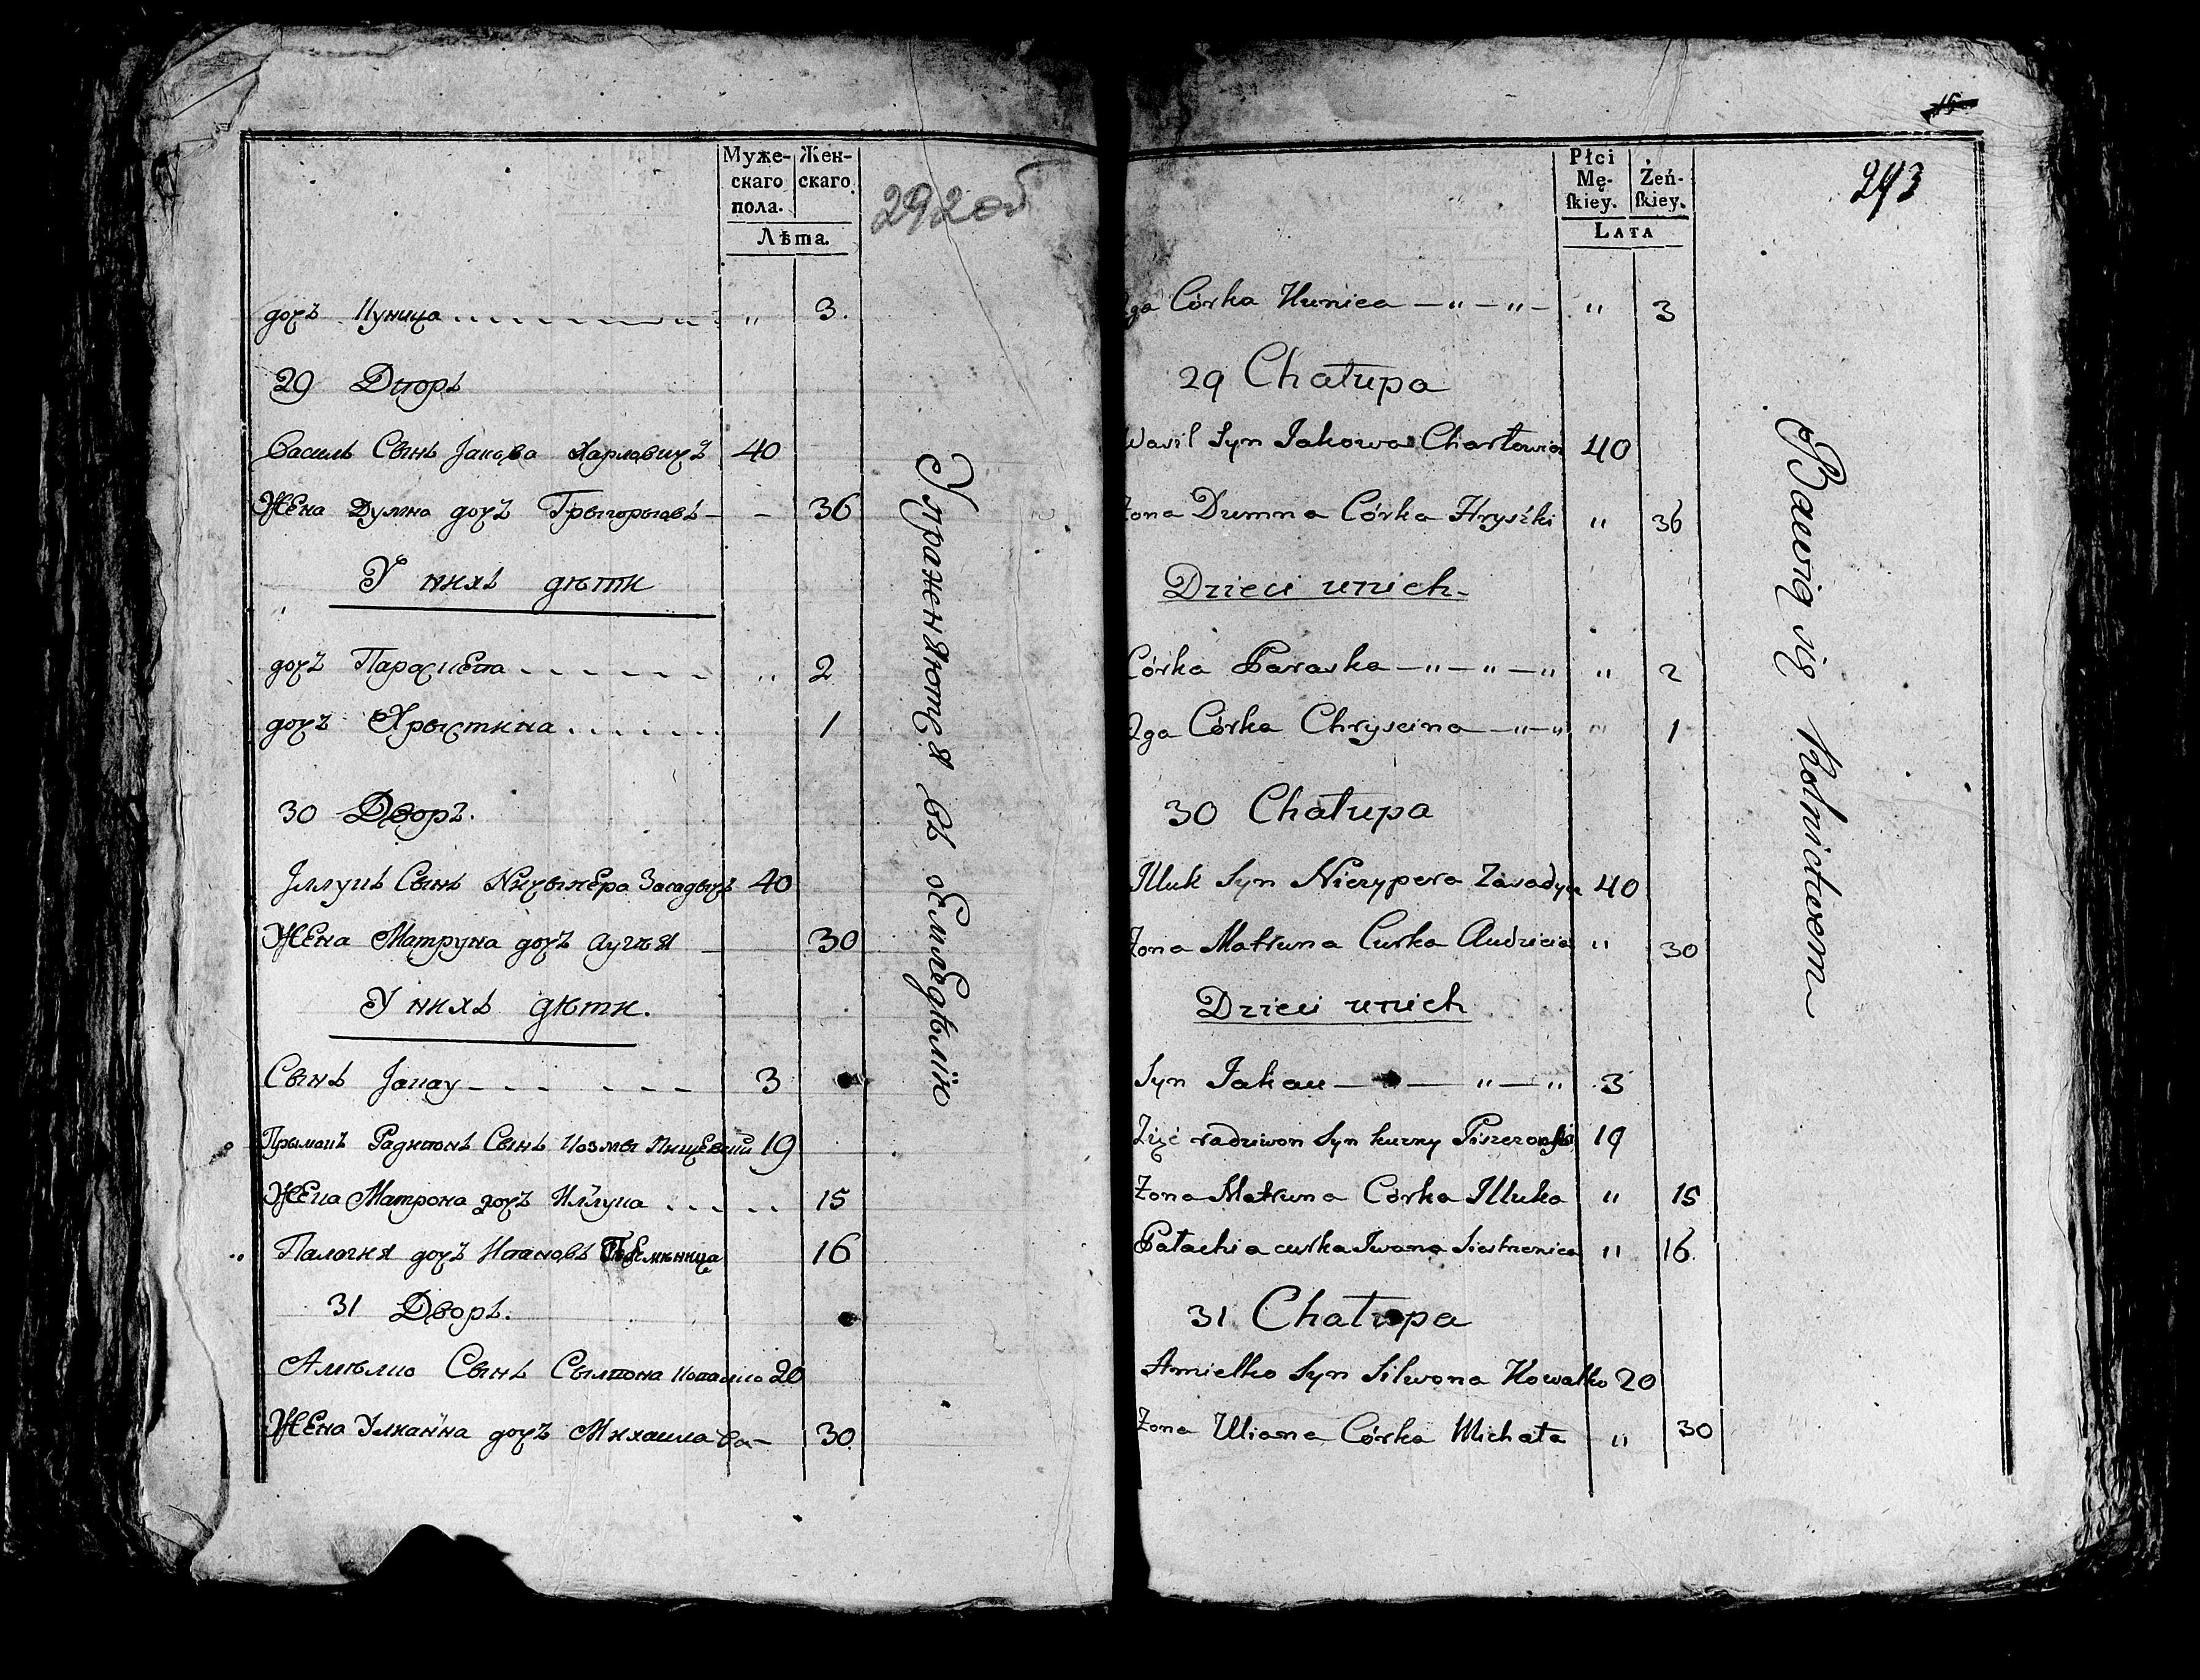 Муже-
скаго
пола.
Жен-
скаго.
Лѣта.
292об
дочъ Куница 〃 3.
29 Дворъ
Василь Сынъ Јакова Харловичъ 40
Жена Думна дочъ Грыгорыовъ - - 36
У нихъ дѣти
дочъ Параскева 〃 2
дочъ Хрыстина 1
30 Дворъ.
Јллукъ Сынъ Ничыпера Засадычъ 40
Жена Матруна дочъ 30
У нихъ дѣти.
Сынъ Јакау 3
Прымакъ Радивонъ Сынъ Козмы 19
Жена Матрона дочъ Иллука 15
Палагия дочъ Ивановъ 16
31 Дворъ.
Амѣлко Сынъ Сылвона Ковалко 20
Жена Улианна дочъ Михаила 30
Упражняютея въ земледѣлию
15
Płci
Mę-
ſkiey.
Żeń-
ſkiey.
LATA
293
2ga Córka Kunica — 〃 — 〃 — 〃 3
29 Chałupa
Wasil Syn Jakowa Charłowicz 40
Żona Dumna Córka Hryszki 〃 36
Dzieci u nich
Córka Paraska — 〃 — 〃 — 〃 〃 2
2ga Córka Chryscina — 〃 — 〃 〃 1
30 Chałupa
Illuk Syn Niczypera Zasadycz 40
Żona Matruna Curka 〃 30
Dzieci u nich
Syn Jakau — 〃 — 〃 3
Zięć radziwon Syn kuzmy 19
Żona Matruna Córka Illuka 〃 15
Pałachia curka Iwana Siestrzenica 〃 16
31 Chałupa
Amielko Syn Silwona Kowalko 20
Żona Uliana Córka Michała 〃 30
Bawią się Rolnictwem